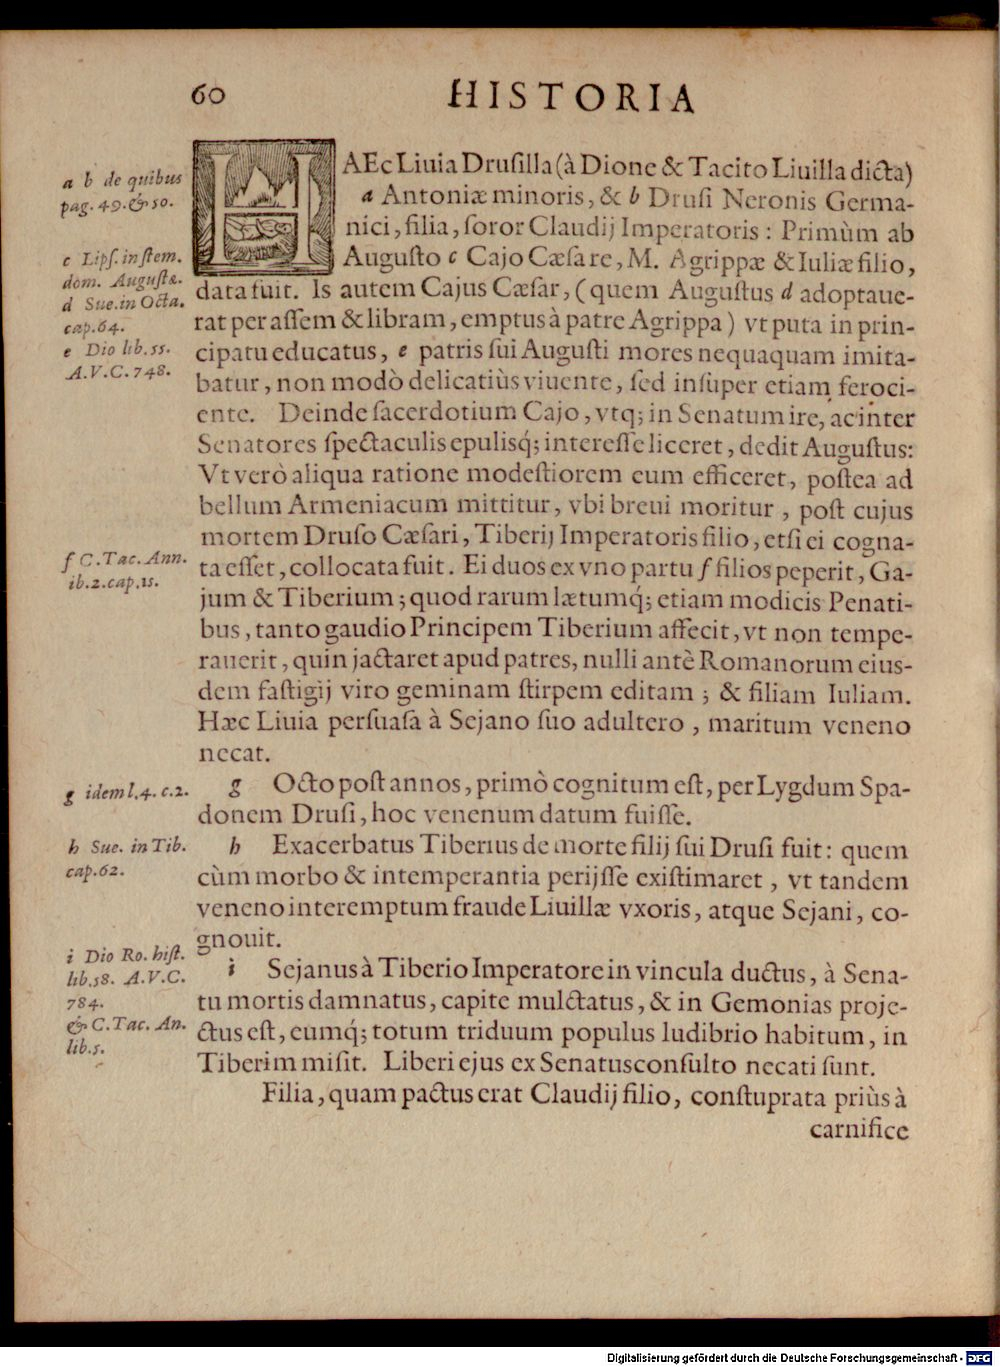 60 HISTORIA
HAEc Liuia Drusilla (à Dione & Tacito Liuilla dicta)
a Antoniæ minoris, & b Drusi Neronis Germa-
nici, filia, soror Claudij Imperatoris: Primùm ab
Augusto c Cajo Cæsare, M. Agrippæ & Iuliæ filio,
data fuit. Is autem Cajus Cæsar, (quem Augustus d adoptaue-
rat per assem & libram, emptus à patre Agrippa) vt puta in prin-
cipatu educatus, e patris sui Augusti mores nequaquam imita-
batur, non modò delicatiùs viuente, sed insuper etiam feroci-
ente. Deinde sacerdotium Cajo, vtq; in Senatum ire, ac inter
Senatores spectaculis epulisq́; interesse liceret, dedit Augustus:
Vt verò aliqua ratione modestiorem eum efficeret, postea ad
bellum Armeniacum mittitur, vbi breui moritur, post cujus
mortem Druso Cæsari, Tiberij Imperatoris filio, etsi ei cogna-
ta esset, collocata fuit. Ei duos ex vno partu f filios peperit, Ga-
jum & Tiberium; quod rarum lætumq́; etiam modicis Penati-
bus, tanto gaudio Principem Tiberium affecit, vt non tempe-
rauerit, quin jactaret apud patres, nulli antè Romanorum eius-
dem fastigij viro geminam stirpem editam; & filiam Iuliam.
Hæc Liuia persuasa à Sejano suo adultero, maritum veneno
necat.
g Octo post annos, primò cognitum est, per Lygdum Spa-
donem Drusi, hoc venenum datum fuisse.
h Exacerbatus Tiberius de morte filij sui Drusi fuit: quem
cùm morbo & intemperantia perijsse existimaret, vt tandem
veneno interemptum fraude Liuillæ vxoris, atque Sejani, co-
gnouit.
i Sejanus à Tiberio Imperatore in vincula ductus, à Sena-
tu mortis damnatus, capite mulctatus, & in Gemonias proje-
ctus est, eumq́; totum triduum populus ludibrio habitum, in
Tiberim misit. Liberi ejus ex Senatusconsulto necati sunt.
Filia, quam pactus erat Claudij filio, constuprata priùs à
carnifice
a b de quibus
pag. 49. & 50.
c Lips. in stem.
dom. Augustæ.
d Sue. in Octa.
cap. 64.
e Dio lib. 55.
A.V.C. 748.
f C. Tac. Ann.
ib. 2. cap. 15.
g idem l. 4. c. 2.
h Sue. in Tib.
cap. 62.
i Dio Ro. hist.
lib. 58. A.V.C.
784.
& C. Tac. An.
lib. 5.
Digitalisierung gefördert durch die Deutsche Forschungsgemeinschaft - DFG